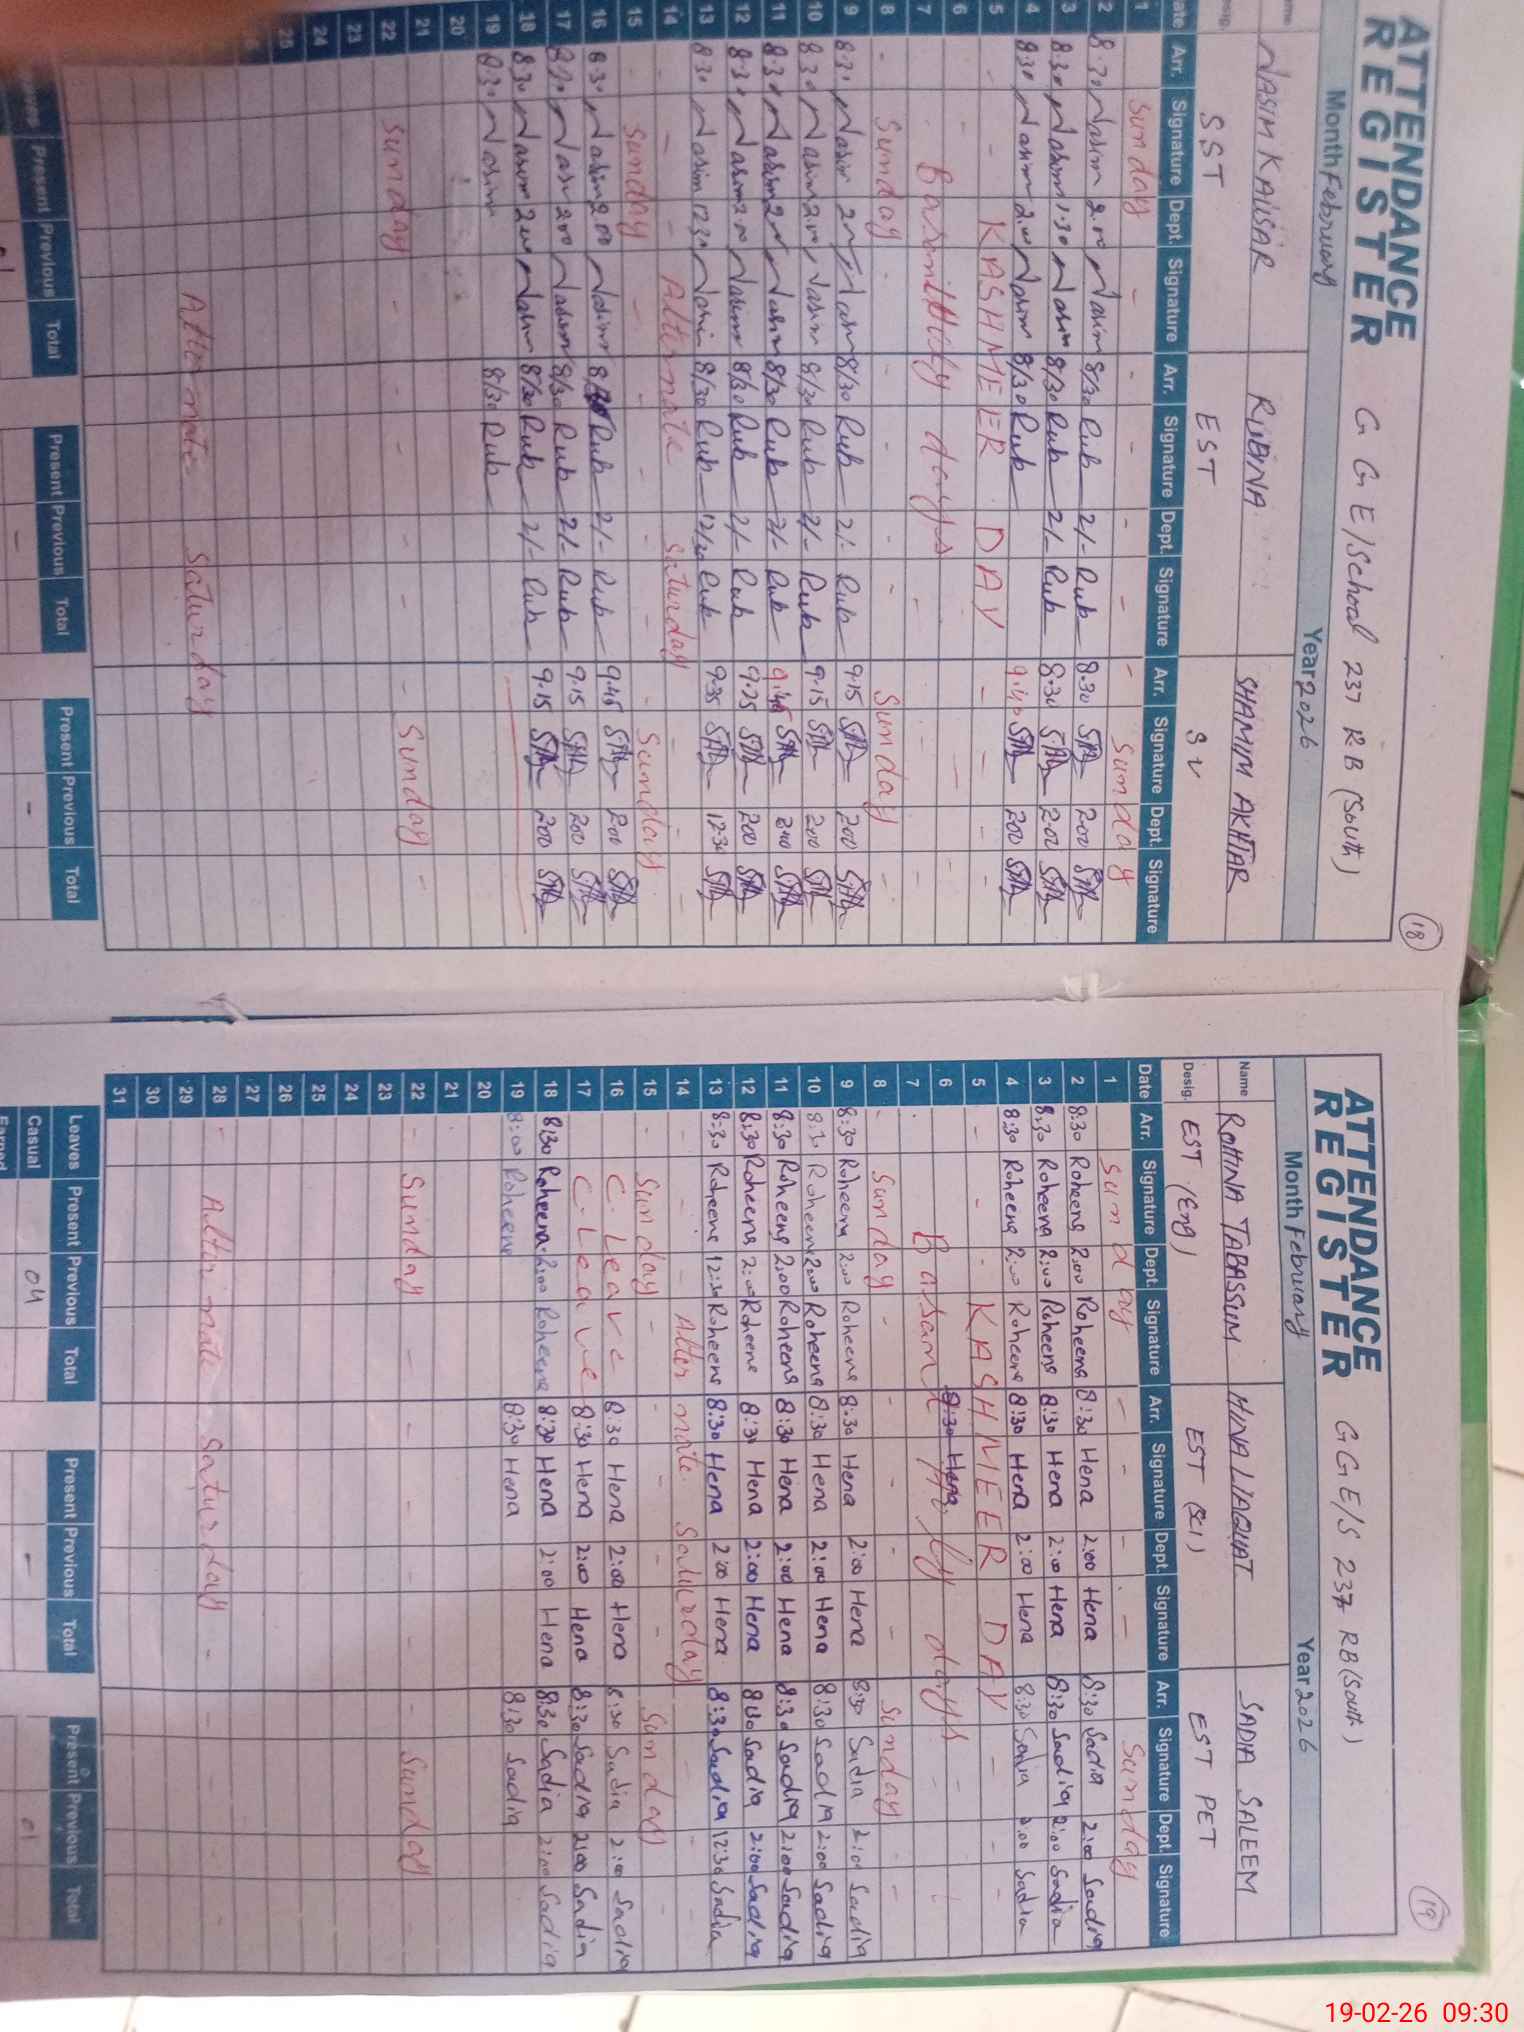 ATTENDANCE
REGISTER
G G E/School 237 RB (South)
18
Month February Year 2026
Name NASIM KAUSAR RUBINA SHAMIM AKHTAR
Desig. SST EST SV
Date Arr. Signature Dept. Signature Arr. Signature Dept. Signature Arr. Signature Dept. Signature
1 Sunday - - - - - - Sunday
2 8.30 Nasim 2.00 Nasim 8/30 Rub 2/- Rub 8.30 200
3 8.30 Nasim 1.30 Nasim 8/30 Rub 2/- Rub 8.30 200
4 8.30 Nasim 2.00 Nasim 8/30 Rub 9.40 200
5 - - KASHMEER DAY - - -
6
7 Basant Holy days
8 - Sunday - - - - Sunday -
9 8.30 Nasim 2 Nasim 8/30 Rub 2/- Rub 9.15 200
10 8.30 Nasim 2.00 Nasim 8/30 Rub 2/- Rub 9.15 200
11 8.30 Nasim 2 Nasim 8/30 Rub 2/- Rub 200
12 8.30 Nasim 2.00 Nasim 8/30 Rub 2/- Rub 9.25 200
13 8.30 Nasim 12.30 Nasim 8/30 Rub 12/30 Rub 9.35 12.30
14 - - - Alternate Saturday - - -
15 - Sunday - - - - - Sunday
16 8.30 Nasim 2.00 Nasim Rub 2/- Rub 9.45 200
17 8.30 Nasim 2.00 Nasim 8/30 Rub 2/- Rub 9.15 200
18 8.30 Nasim 2.00 Nasim 8/30 Rub 2/- Rub 9.15 200
19 8.30 Nasim 8/30 Rub
20
21
22 Sunday - - - - - - Sunday -
23
24
25
Alternate Saturday
Present Previous Total Present Previous Total Present Previous Total
ATTENDANCE
REGISTER
G G E/S 237 RB (South)
19
Month February Year 2026
Name ROHINA TABASSUM HINA LIAQUAT SADIA SALEEM
Desig. EST (Eng) EST (Sci) EST PET
Date Arr. Signature Dept. Signature Arr. Signature Dept. Signature Arr. Signature Dept. Signature
1 Sunday - - - - Sunday
2 8:30 Roheena 2:00 Roheena 8:30 Hena 2:00 Hena 8:30 Sadia 2:00 Sadia
3 8:30 Roheena 2:00 Roheena 8:30 Hena 2:00 Hena 8:30 Sadia 2:00 Sadia
4 8:30 Roheena 2:00 Roheena 8:30 Hena 2:00 Hena 8:30 Sadia 2:00 Sadia
5 - - - KASHMEER DAY - - -
6 8:30 Hena
7 Basant Holy days
8 - Sunday - - - - - Sunday -
9 8:30 Roheena 2:00 Roheena 8:30 Hena 2:00 Hena 8:30 Sadia 2:00 Sadia
10 8:30 Roheena 2:00 Roheena 8:30 Hena 2:00 Hena 8:30 Sadia 2:00 Sadia
11 8:30 Roheena 2:00 Roheena 8:30 Hena 2:00 Hena 8:30 Sadia 2:00 Sadia
12 8:30 Roheena 2:00 Roheena 8:30 Hena 2:00 Hena 8:30 Sadia 2:00 Sadia
13 8:30 Roheena 12:30 Roheena 8:30 Hena 2:00 Hena 8:30 Sadia 12:30 Sadia
14 - - - Alternate Saturday - - -
15 - Sunday - - - - - Sunday -
16 C. Leave 8:30 Hena 2:00 Hena 8:30 Sadia 2:00 Sadia
17 C-Leave 8:30 Hena 2:00 Hena 8:30 Sadia 2:00 Sadia
18 8:30 Roheena 2:00 Roheena 8:30 Hena 2:00 Hena 8:30 Sadia 2:00 Sadia
19 8:00 Roheena 8:30 Hena 8:30 Sadia
20
21
22 - Sunday - - - - - Sunday
23
24
25
26
27
28 - Alternate Saturday - - -
29
30
31
Leaves Present Previous Total Present Previous Total Present Previous Total
Casual 04 - 01
Earned
19-02-26 09:30